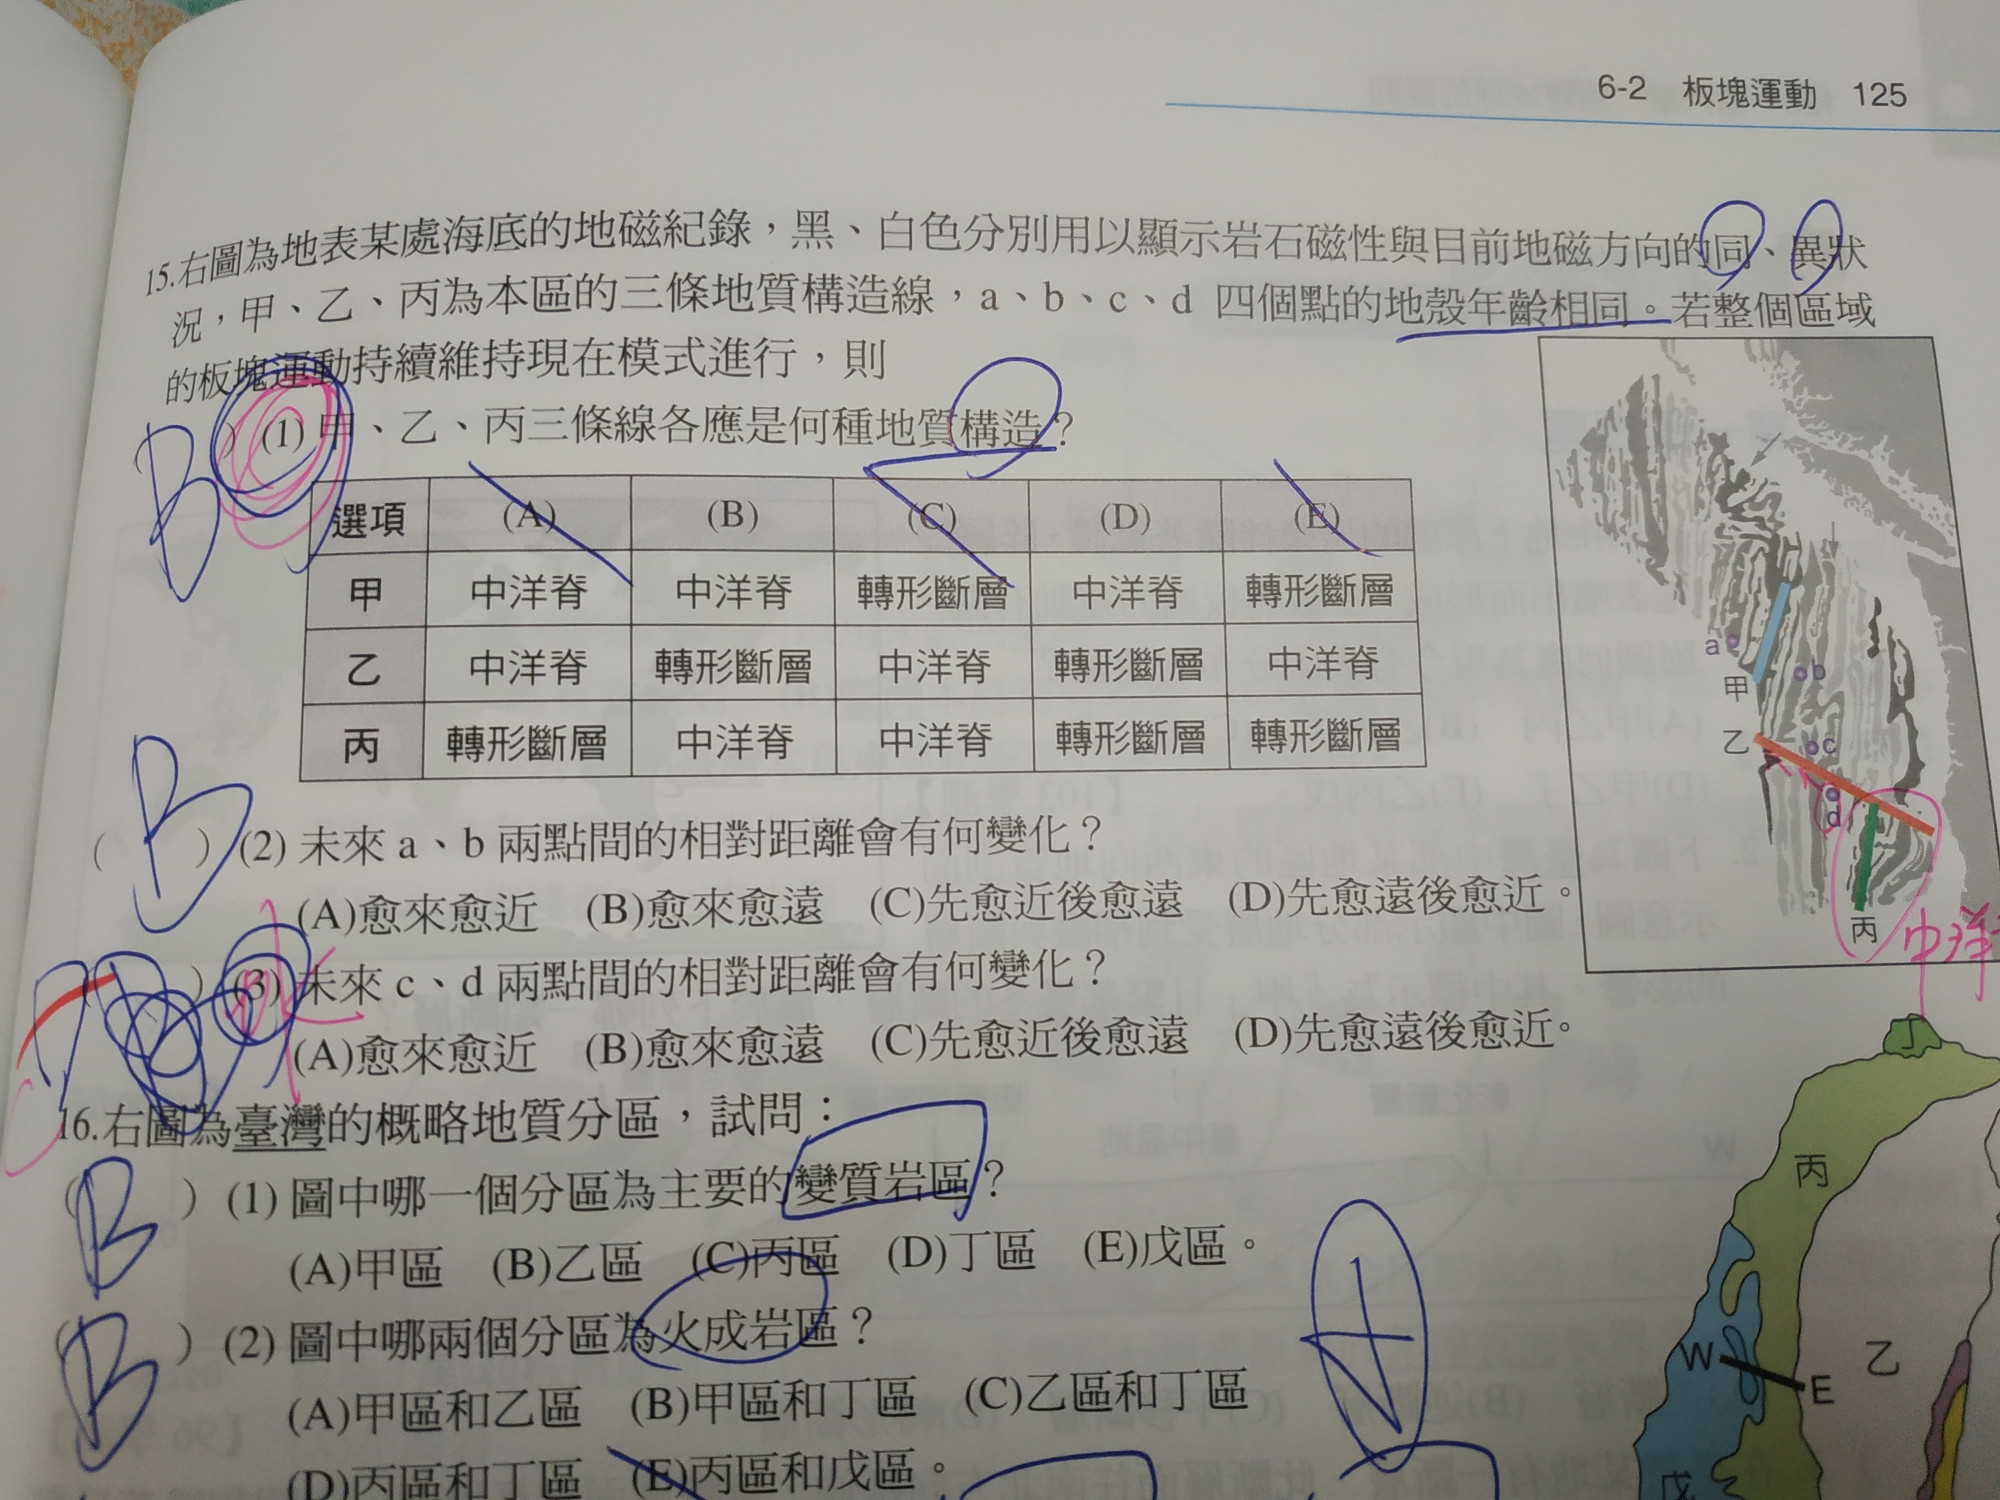 6-2 板塊運動 125
15.右圖為地表某處海底的地磁紀錄，黑、白色分別用以顯示岩石磁性與目前地磁方向的同、異狀
況，甲、乙、丙為本區的三條地質構造線，a、b、c、d 四個點的地殼年齡相同。若整個區域
的板塊運動持續維持現在模式進行，則
B ( ) (1) 甲、乙、丙三條線各應是何種地質構造？
選項 (A) (B) (C) (D) (E)
甲 中洋脊 中洋脊 轉形斷層 中洋脊 轉形斷層
乙 中洋脊 轉形斷層 中洋脊 轉形斷層 中洋脊
丙 轉形斷層 中洋脊 中洋脊 轉形斷層 轉形斷層
a
b
甲
乙
c
d
丙
中洋
( B ) (2) 未來 a、b 兩點間的相對距離會有何變化？
(A)愈來愈近 (B)愈來愈遠 (C)先愈近後愈遠 (D)先愈遠後愈近。
( ) (3) 未來 c、d 兩點間的相對距離會有何變化？
(A)愈來愈近 (B)愈來愈遠 (C)先愈近後愈遠 (D)先愈遠後愈近。
16.右圖為臺灣的概略地質分區，試問：
( B ) (1) 圖中哪一個分區為主要的變質岩區？
(A)甲區 (B)乙區 (C)丙區 (D)丁區 (E)戊區。
( B ) (2) 圖中哪兩個分區為火成岩區？
(A)甲區和乙區 (B)甲區和丁區 (C)乙區和丁區
(D)丙區和丁區 (E)丙區和戊區。
丁
丙
W
E
乙
戊